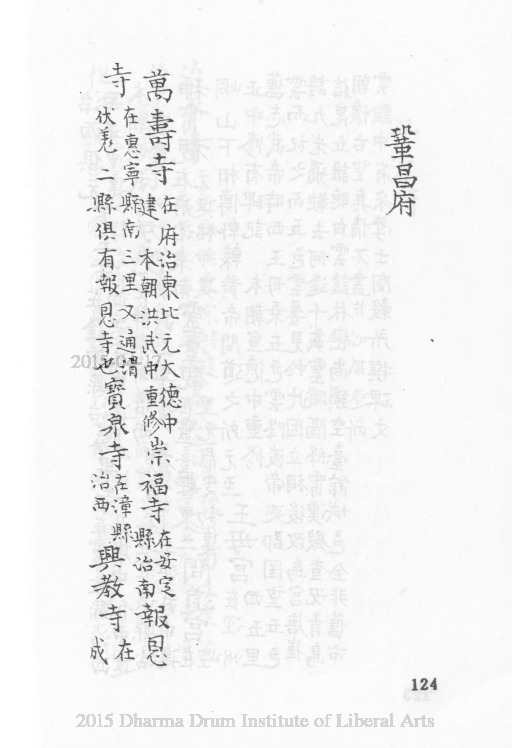 鞏昌府
萬壽寺在府治東北元大德中建本朝洪武中重修崇福寺在安定縣治南報恩
寺在惠寧縣南三里又通渭伏羌二縣俱有報恩寺也寶泉寺在漳縣治西興教寺在成
124
2015-03-17
2015 Dharma Drum Institute of Liberal Arts